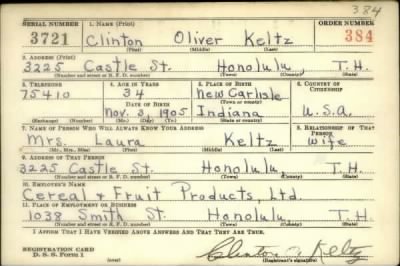 384
SERIAL NUMBER 1. NAME (Print) ORDER NUMBER
3721 Clinton Oliver Keltz 384
(First) (Middle) (Last)
2. ADDRESS (Print)
3225 Castle St. Honolulu, T.H.
(Number and street or R. F. D. number) (Town) (County) (State)
3. TELEPHONE 4. AGE IN YEARS 5. PLACE OF BIRTH 6. COUNTRY OF CITIZENSHIP
75410 34 New Carlisle
DATE OF BIRTH (Town or county)
Nov. 3, 1905 Indiana U.S.A.
(Exchange) (Number) (Mo.) (Day) (Yr.) (State or country)
7. NAME OF PERSON WHO WILL ALWAYS KNOW YOUR ADDRESS 8. RELATIONSHIP OF THAT PERSON
Mrs. Laura Keltz Wife
(Mr., Mrs., Miss) (First) (Middle) (Last)
9. ADDRESS OF THAT PERSON
3225 Castle St. Honolulu T.H.
(Number and street or R. F. D. number) (Town) (County) (State)
10. EMPLOYER'S NAME
Cereal & Fruit Products, Ltd.
11. PLACE OF EMPLOYMENT OR BUSINESS
1038 Smith St. Honolulu T.H.
(Number and street or R. F. D. number) (Town) (County) (State)
I AFFIRM THAT I HAVE VERIFIED ABOVE ANSWERS AND THAT THEY ARE TRUE.
REGISTRATION CARD
D. S. S. Form 1 (over) Clinton O. Keltz
(Registrant's signature)